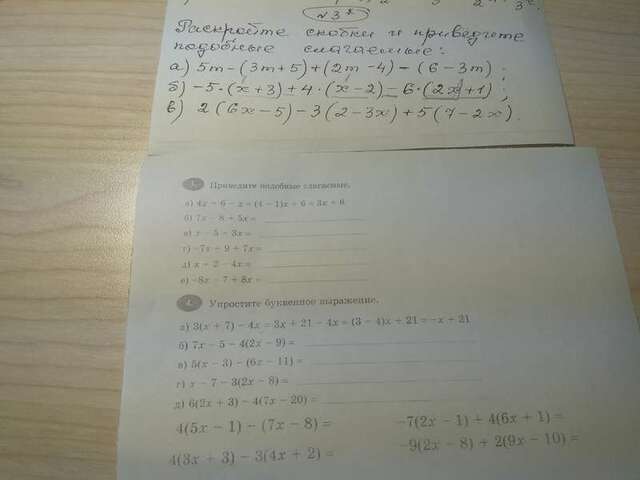 №3*
Раскройте скобки и приведите
подобные слагаемые:
а) 5m-(3m+5)+(2m-4)-(6-3m);
б) -5·(x+3)+4·(x-2)-6·(2x+1);
в) 2(6x-5)-3(2-3x)+5(7-2x).
Приведите подобные слагаемые.
а) 4x + 6 − x = (4 − 1)x + 6 = 3x + 6
б) 7x − 8 + 5x =
в) x − 5 − 3x =
г) −7x + 9 + 7x =
д) x − 2 − 4x =
е) −8x − 7 + 8x =
Упростите буквенное выражение.
а) 3(x + 7) − 4x = 3x + 21 − 4x = (3 − 4)x + 21 = −x + 21
б) 7x − 5 − 4(2x − 9) =
в) 5(x − 3) − (6x − 11) =
г) x − 7 − 3(2x − 8) =
д) 6(2x + 3) − 4(7x − 20) =
4(5x − 1) − (7x − 8) = −7(2x − 1) + 4(6x + 1) =
4(3x + 3) − 3(4x + 2) = −9(2x − 8) + 2(9x − 10) =